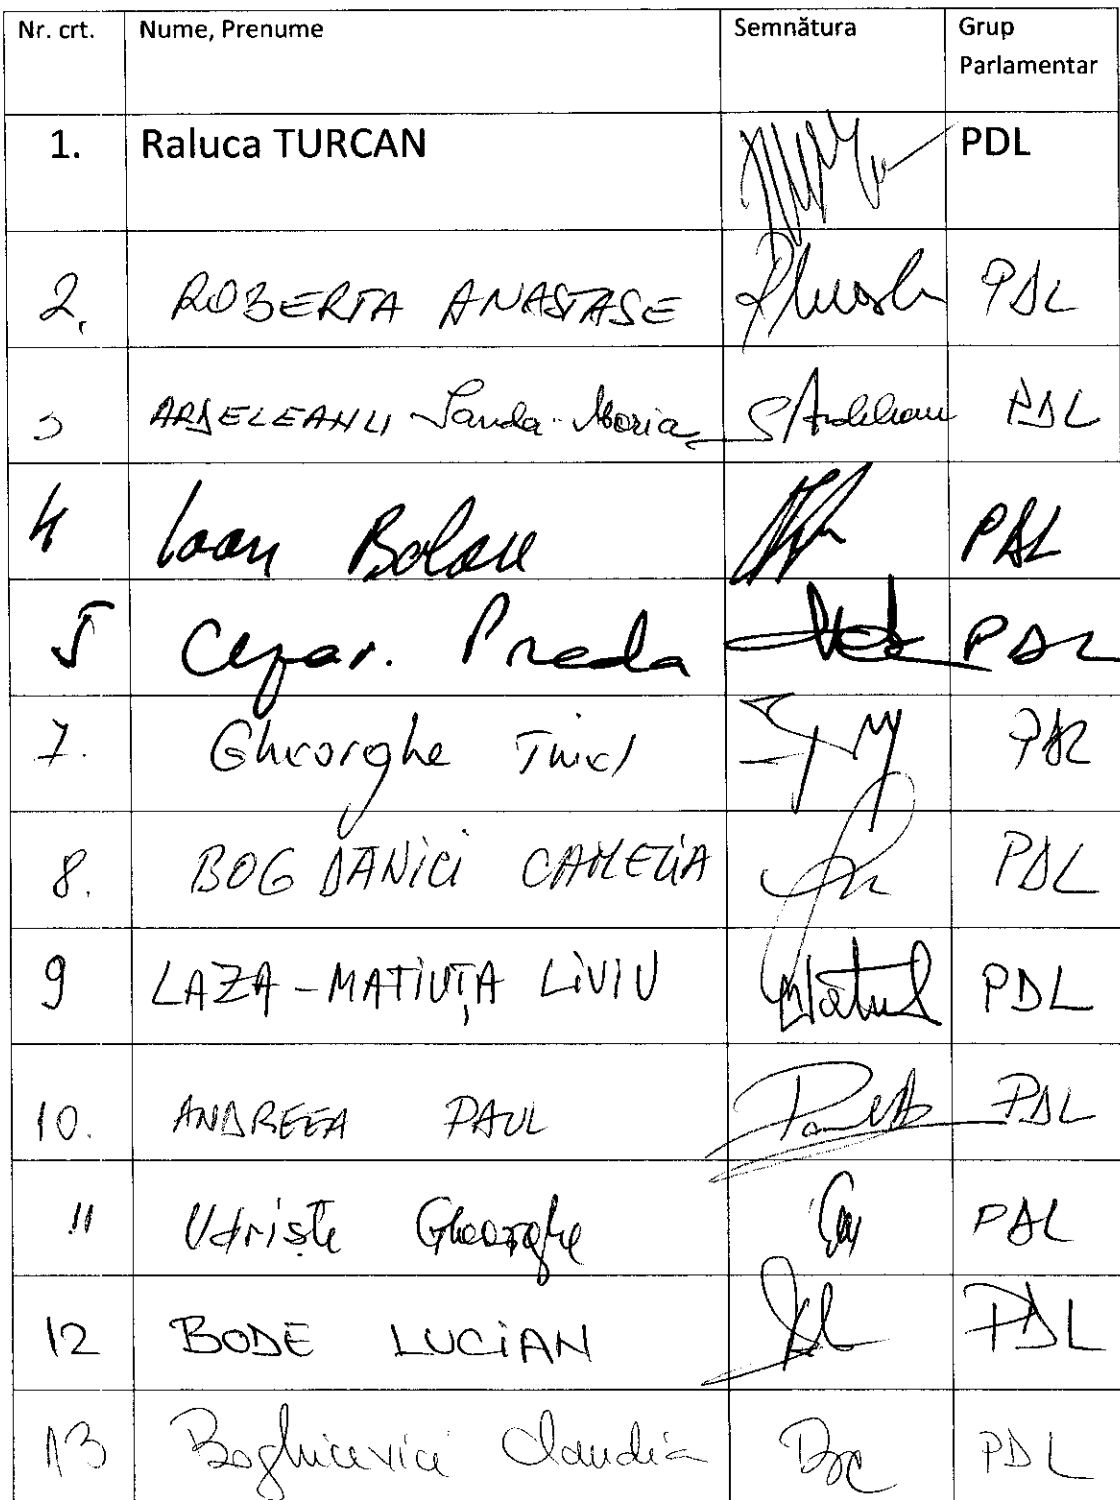 Nr. crt. Nume, Prenume Semnătura Grup
Parlamentar
1. Raluca TURCAN PDL
2. ROBERTA ANASTASE PDL
3 ARDELEANU Sanda-Maria SArdeleanu PDL
4 Ioan Balan PDL
5 Cezar. Preda PDL
7. Gheorghe PDL
8. BOGDANICI CAMELIA PDL
9 LAZA-MATIUȚA LIVIU PDL
10. ANDREEA PAUL PDL
11 Udriște Gheorghe PDL
12 BODE LUCIAN PDL
13 Boghicevici Claudia PDL